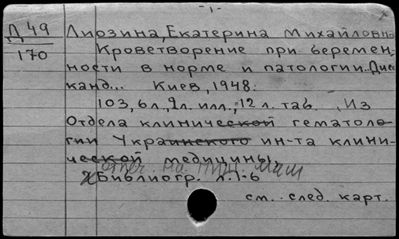 - 1 -
Д 49
170
Лиозина, Екатерина Михайловна
Кроветворение при беремен-
ности в норме и патологии. Дис.
канд... Киев, 1948.
103, 6 л., 2 л. илл., 12 л. таб. Из
Отдела клинической гематоло-
гии Украинского ин-та клини-
ческой медицины.
отпеч. на пиш. маш
Библиогр. л. 1-6
см. след. карт.